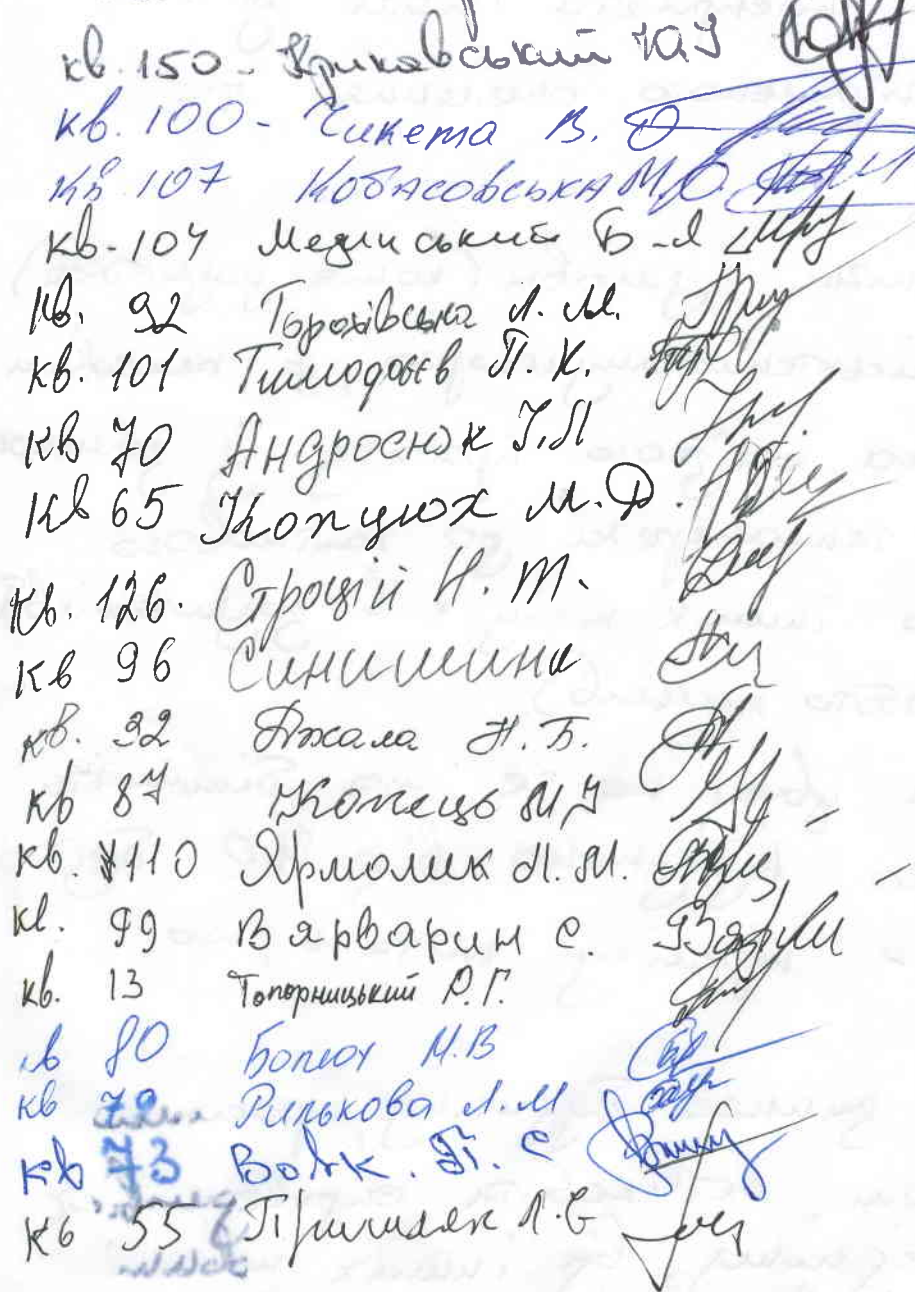 кв. 150 - Криковський Ю.У
кв. 100 - Чикета В. О
кв. 107 Кобасовська М.О.
кв. 104 Мединський Б-Я
кв. 92 Горохівська Л. М.
кв. 101 Тимофєєв П. К.
кв 70 Андросюк І.Л
кв 65 Копцюх М.Д.
кв. 126. Строцій Н. Т.
кв 96 Синишина
кв. 92 Джала Н. Б.
кв 87 Хомець М
кв. 110 Ярмолик Л. М.
кв. 99 Варварин С.
кв. 13 Топорницький Р. Г.
кв 80 М.В
кв Рилькова Л.М
кв 73 Вовк. П. С
кв 55 Пришляк Л.Є